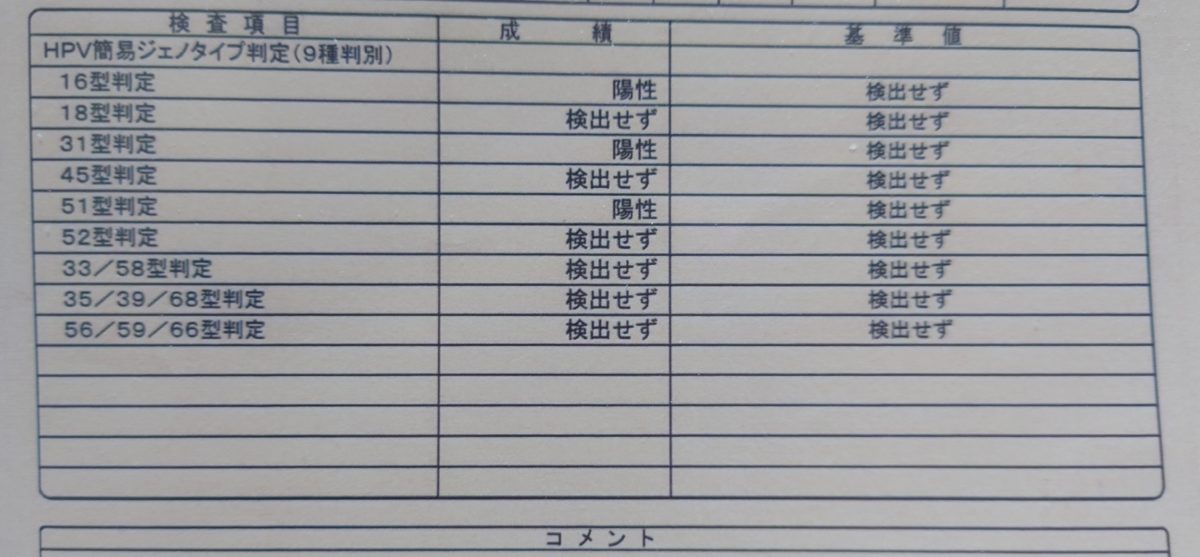 検査項目 成績 基準値
HPV簡易ジェノタイプ判定(9種判別)
16型判定 陽性 検出せず
18型判定 検出せず 検出せず
31型判定 陽性 検出せず
45型判定 検出せず 検出せず
51型判定 陽性 検出せず
52型判定 検出せず 検出せず
33/58型判定 検出せず 検出せず
35/39/68型判定 検出せず 検出せず
56/59/66型判定 検出せず 検出せず
コメント